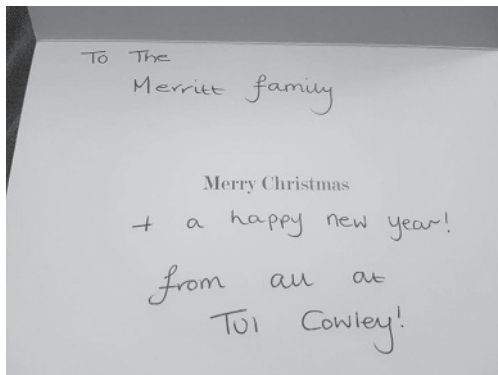 To The
Merritt family
Merry Christmas
+ a happy new year!
from all at
TUI Cowley!